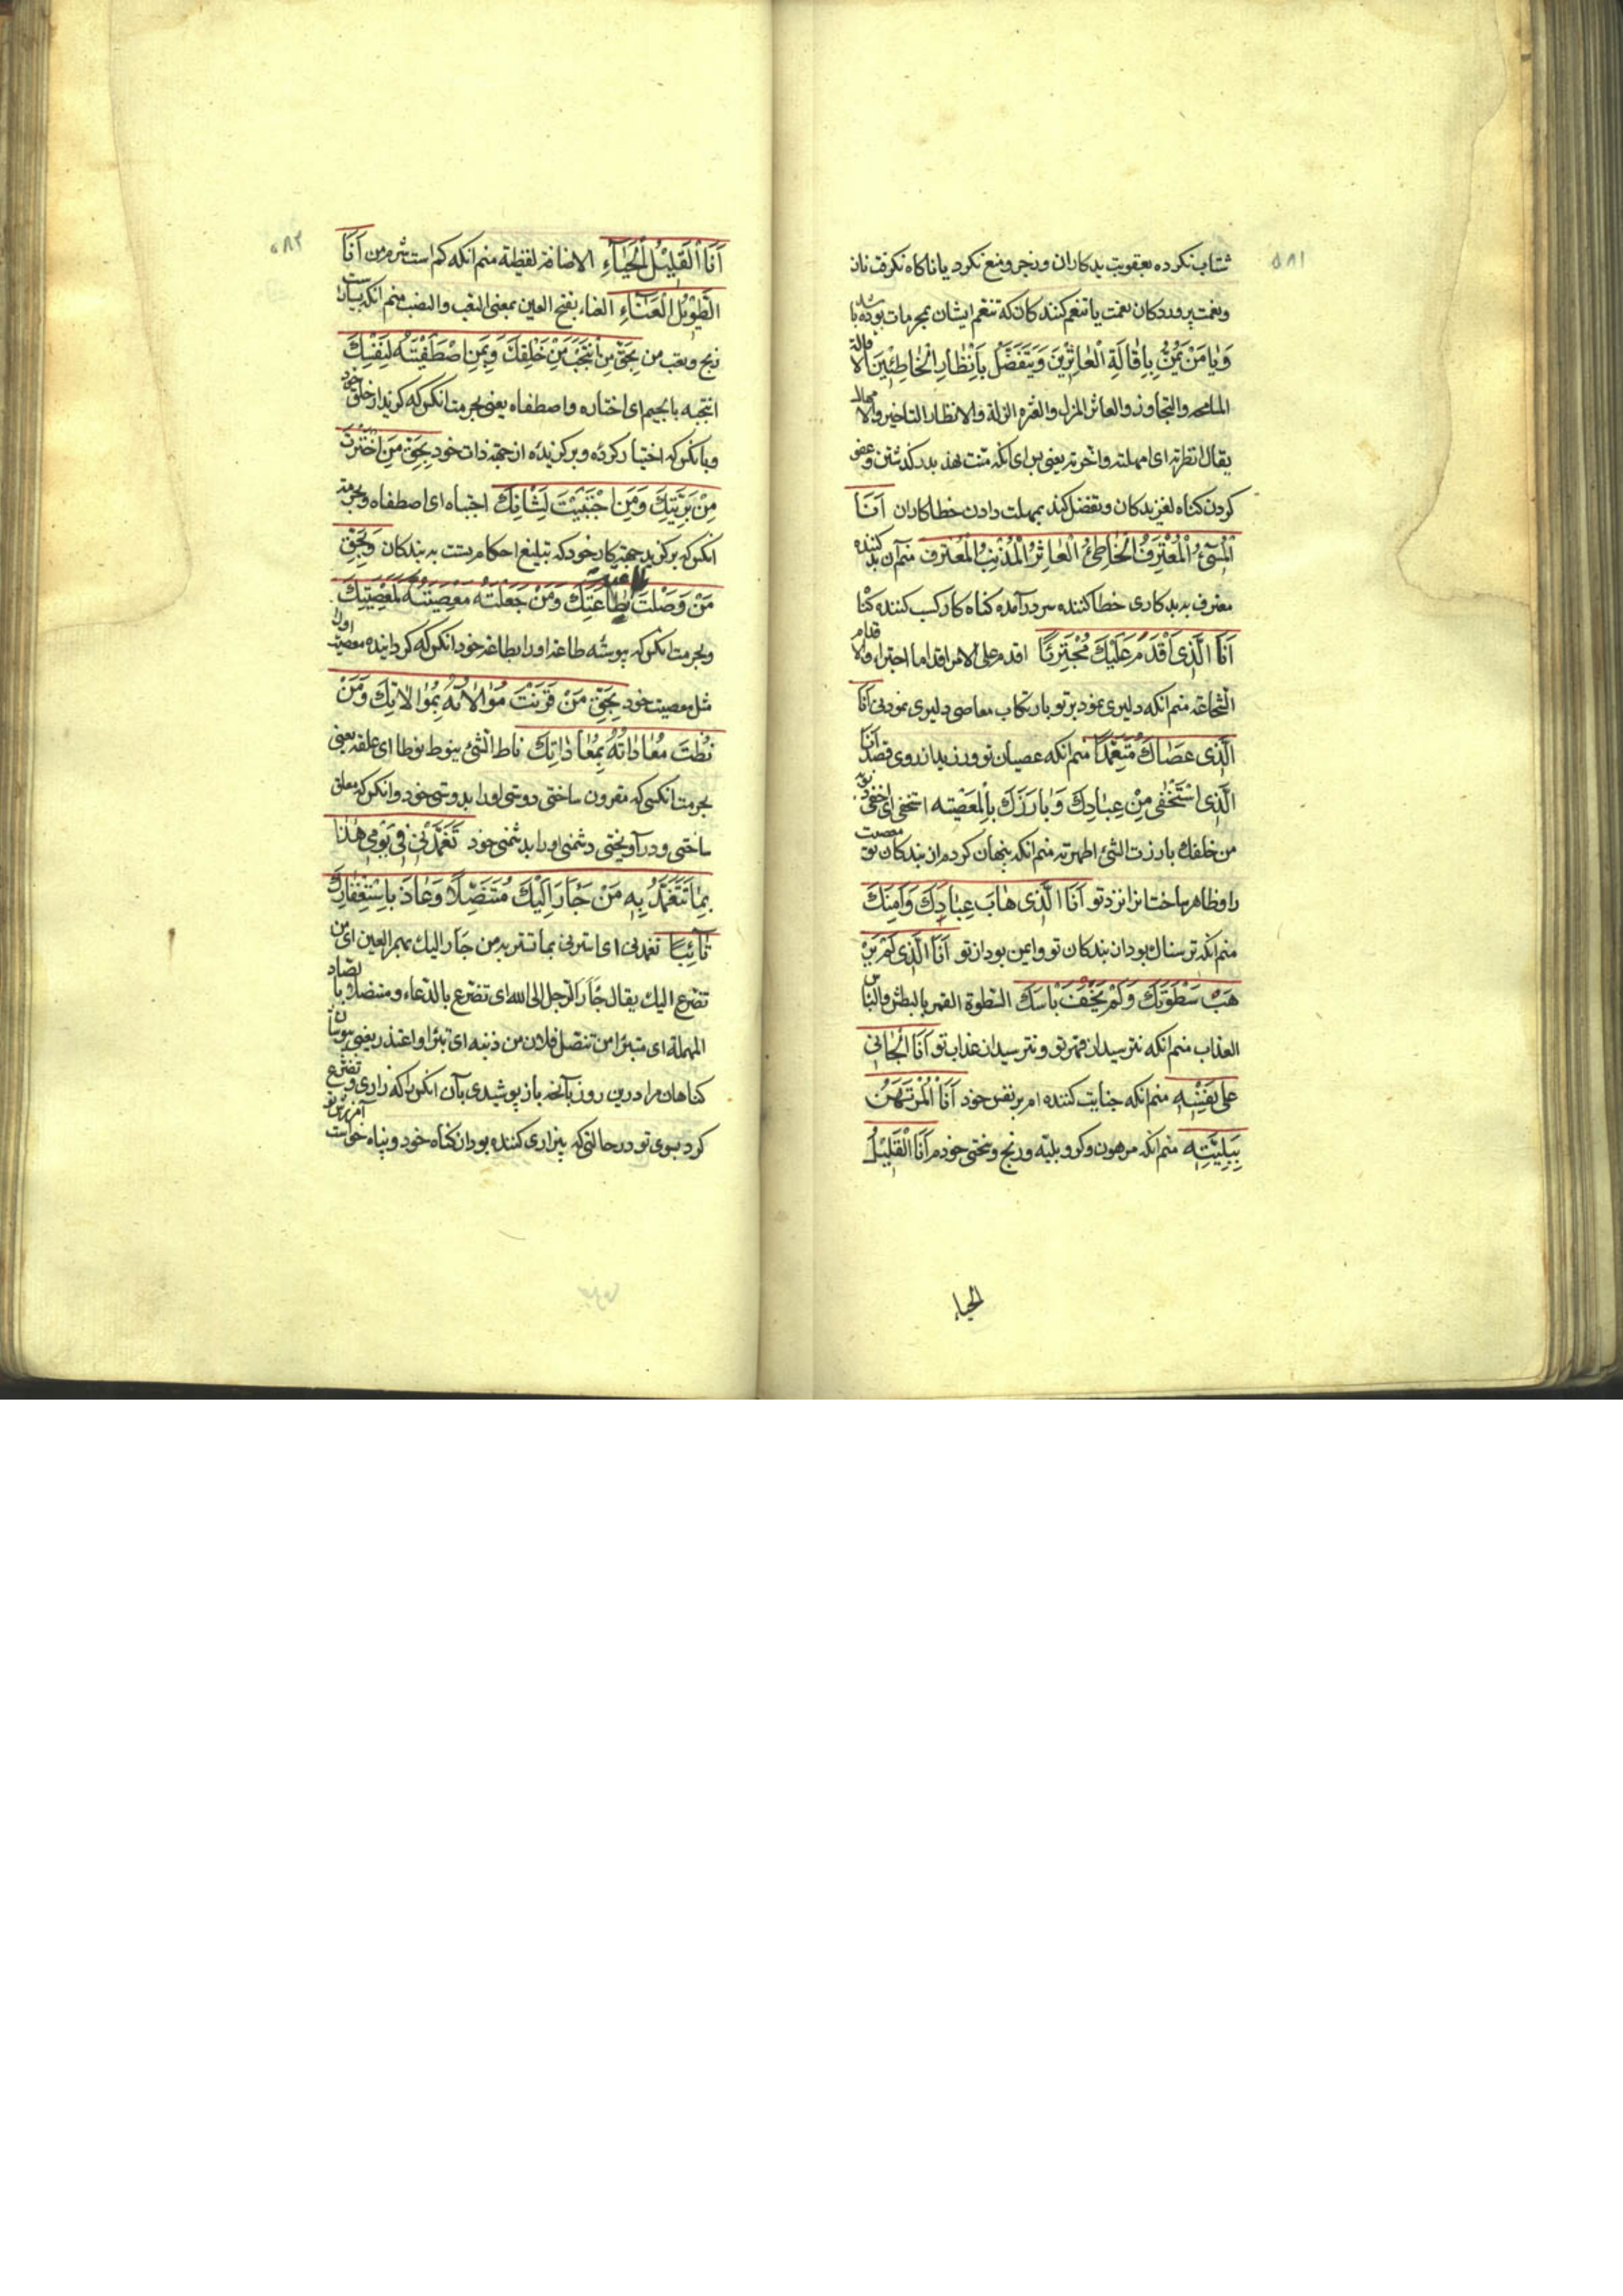 ۵۸۱
شتاب نکرده بعقوبت بدکاران وزجر ومنع نکرد یا ناکاه نکرفت نان
ونعمت پروردکان نعمت یا تنعم کنندکان که تنعم ایشان بمحرمات بوده باشد
وَيَا مَنْ يَمُنُّ بِاِقَالَةِ الْعَاثِرِينَ وَيَتَفَضَّلُ بِاِنْظَارِ الْخَاطِئِينَ الاقالة
المسامحه والتجاوز والعاثر المزل والعثره الزلة والانظار التاخیر والامهال
یقال انظرته ای امهلته واخرته یعنی ای انکه منت نهد بدر کذشتن وعفو
کردن کناه لغزیدکان وتفضل کند بمهلت دادن خطاکاران اَنَا
الْمُسِیءُ الْمُعْتَرِفُ الْخَاطِئُ الْعَاثِرُ الْمُذْنِبُ الْمُعْتَرِفُ منم آن بد کننده
معترف به بدکاری خطا کننده بسر درآمده کناه کار کسب کننده کناه
اَنَا الَّذِی اَقْدَمَ عَلَيْكَ مُجْتَرِئًا اقدم علی الامر اقداما اجترا والاقدام
الشجاعة منم انکه دلیری نمود بر تو بارتکاب معاصی دلیری نمودنی اَنَا
الَّذِی عَصَاكَ مُتَعَمِّدًا منم انکه عصیان تو ورزید از روی قصد اَنَا
الَّذِی اسْتَخْفٰی مِنْ عِبَادِكَ وَبَارَزَكَ بِالْمَعْصِیَةِ استخفی ای اخفی
من خلقك بارزت الشئ اظهرته منم انکه پنهان کردم از بندکان تو معصیت
را وظاهر ساختم انرا نزد تو اَنَا الَّذِی هَابَ عِبَادَكَ وَاَمِنَكَ
منم انکه ترسناك بود از بندکان تو وایمن بود از تو اَنَا الَّذِی لَمْ يَرْ
هَبْ سَطْوَتَكَ وَلَمْ يَخَفْ بَاْسَكَ السطوة القهر بالبطش والباس
العذاب منم انکه نترسید از قهر تو ونترسید از عذاب تو اَنَا الْجَانِی
عَلٰی نَفْسِهِ منم انکه جنایت کننده ام بر نفس خود اَنَا الْمُرْتَهَنُ
بِبَلِيَّتِهِ منم انکه مرهون وکرو بلیه ورنج وسختی خودم اَنَا الْقَلِيلُ
الحیاء
۵۸۲
اَنَا الْقَلِيلُ الْحَيَاءِ الاضافة لفظیة منم انکه کم است شرم من اَنَا
الطَّوِيلُ الْعَنَاءِ العناء بفتح العین بمعنی التعب والنصب منم انکه بسیار است
رنج وتعب من بِحَقِّ مَنِ انْتَجَبْتَ مِنْ خَلْقِكَ وَبِمَنِ اصْطَفَيْتَهُ لِنَفْسِكَ
انتجبه بالجیم ای اختاره واصطفاه یعنی بحرمت انکس که کزیدی از خلق خود
وبانکس که اختیار کردهٔ وبرکزیدهٔ از جهة ذات خود بِحَقِّ مَنِ اخْتَرْتَ
مِنْ بَرِيَّتِكَ وَمَنِ اجْتَبَيْتَ لِشَانِكَ اجتباه ای اصطفاه وبحرمت
انکس که برکزید جهة کار خود که تبلیغ احکام تست به بندکان وَبِحَقِّ
مَنْ وَصَلْتَ طَاعَتَهُ بِطَاعَتِكَ وَمَنْ جَعَلْتَ مَعْصِيَتَهُ كَمَعْصِيَتِكَ
وبحرمت انکس که پیوستهٔ طاعة او را بطاعة خود انکس که کردانیدهٔ معصیت او را
مثل معصیت خود بِحَقِّ مَنْ قَرَنْتَ مُوَالَاتَهُ بِمُوَالَاتِكَ وَمَنْ
نُطْتَ مُعَادَاتَهُ بِمُعَادَاتِكَ ناط الشئ ینوط نوطا ای علقه یعنی
بحرمت انکسی که مقرون ساختی دوستی او را بدوستی خود وانکس که معلق
ساختی ودرآویختی دشمنی او را بدشمنی خود تَغَمَّدْنِی فِی يَوْمِی هٰذَا
بِمَا تَتَغَمَّدُ بِهِ مَنْ جَاَرَ اِلَيْكَ مُتَنَصِّلًا وَعَاذَ بِاسْتِغْفَارِكَ
تَائِبًا تغمدنی ای استرنی بما تستر به من جار الیك بهمز العین ای من
تضرع الیك یقال جار الرجل الی الله ای تضرع بالدعاء ومتنصلا بالصاد
المهملة ای متبرا من تنصل فلان من ذنبه ای تبرا واعتذر یعنی بپوشان
کناهان مرا درین روز بآنچه باز پوشیدی بآن انکس را که زاری وتضرع
کرد بسوی تو در حالتی که بیزاری کننده بود از کناه خود وپناه خواست آمرزش تو